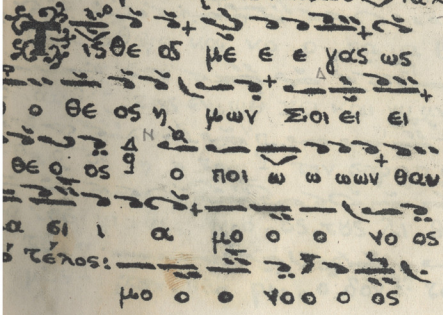 Τ ις θε ος με ε ε γας ως
ο θε ος η μων Σοι ει ει
θε ο ος ο ποι ω ω ωων θαυ
α σι ι α μο ο ο νο ος
ὁ τέλος: μο ο ο νο ο ο ος